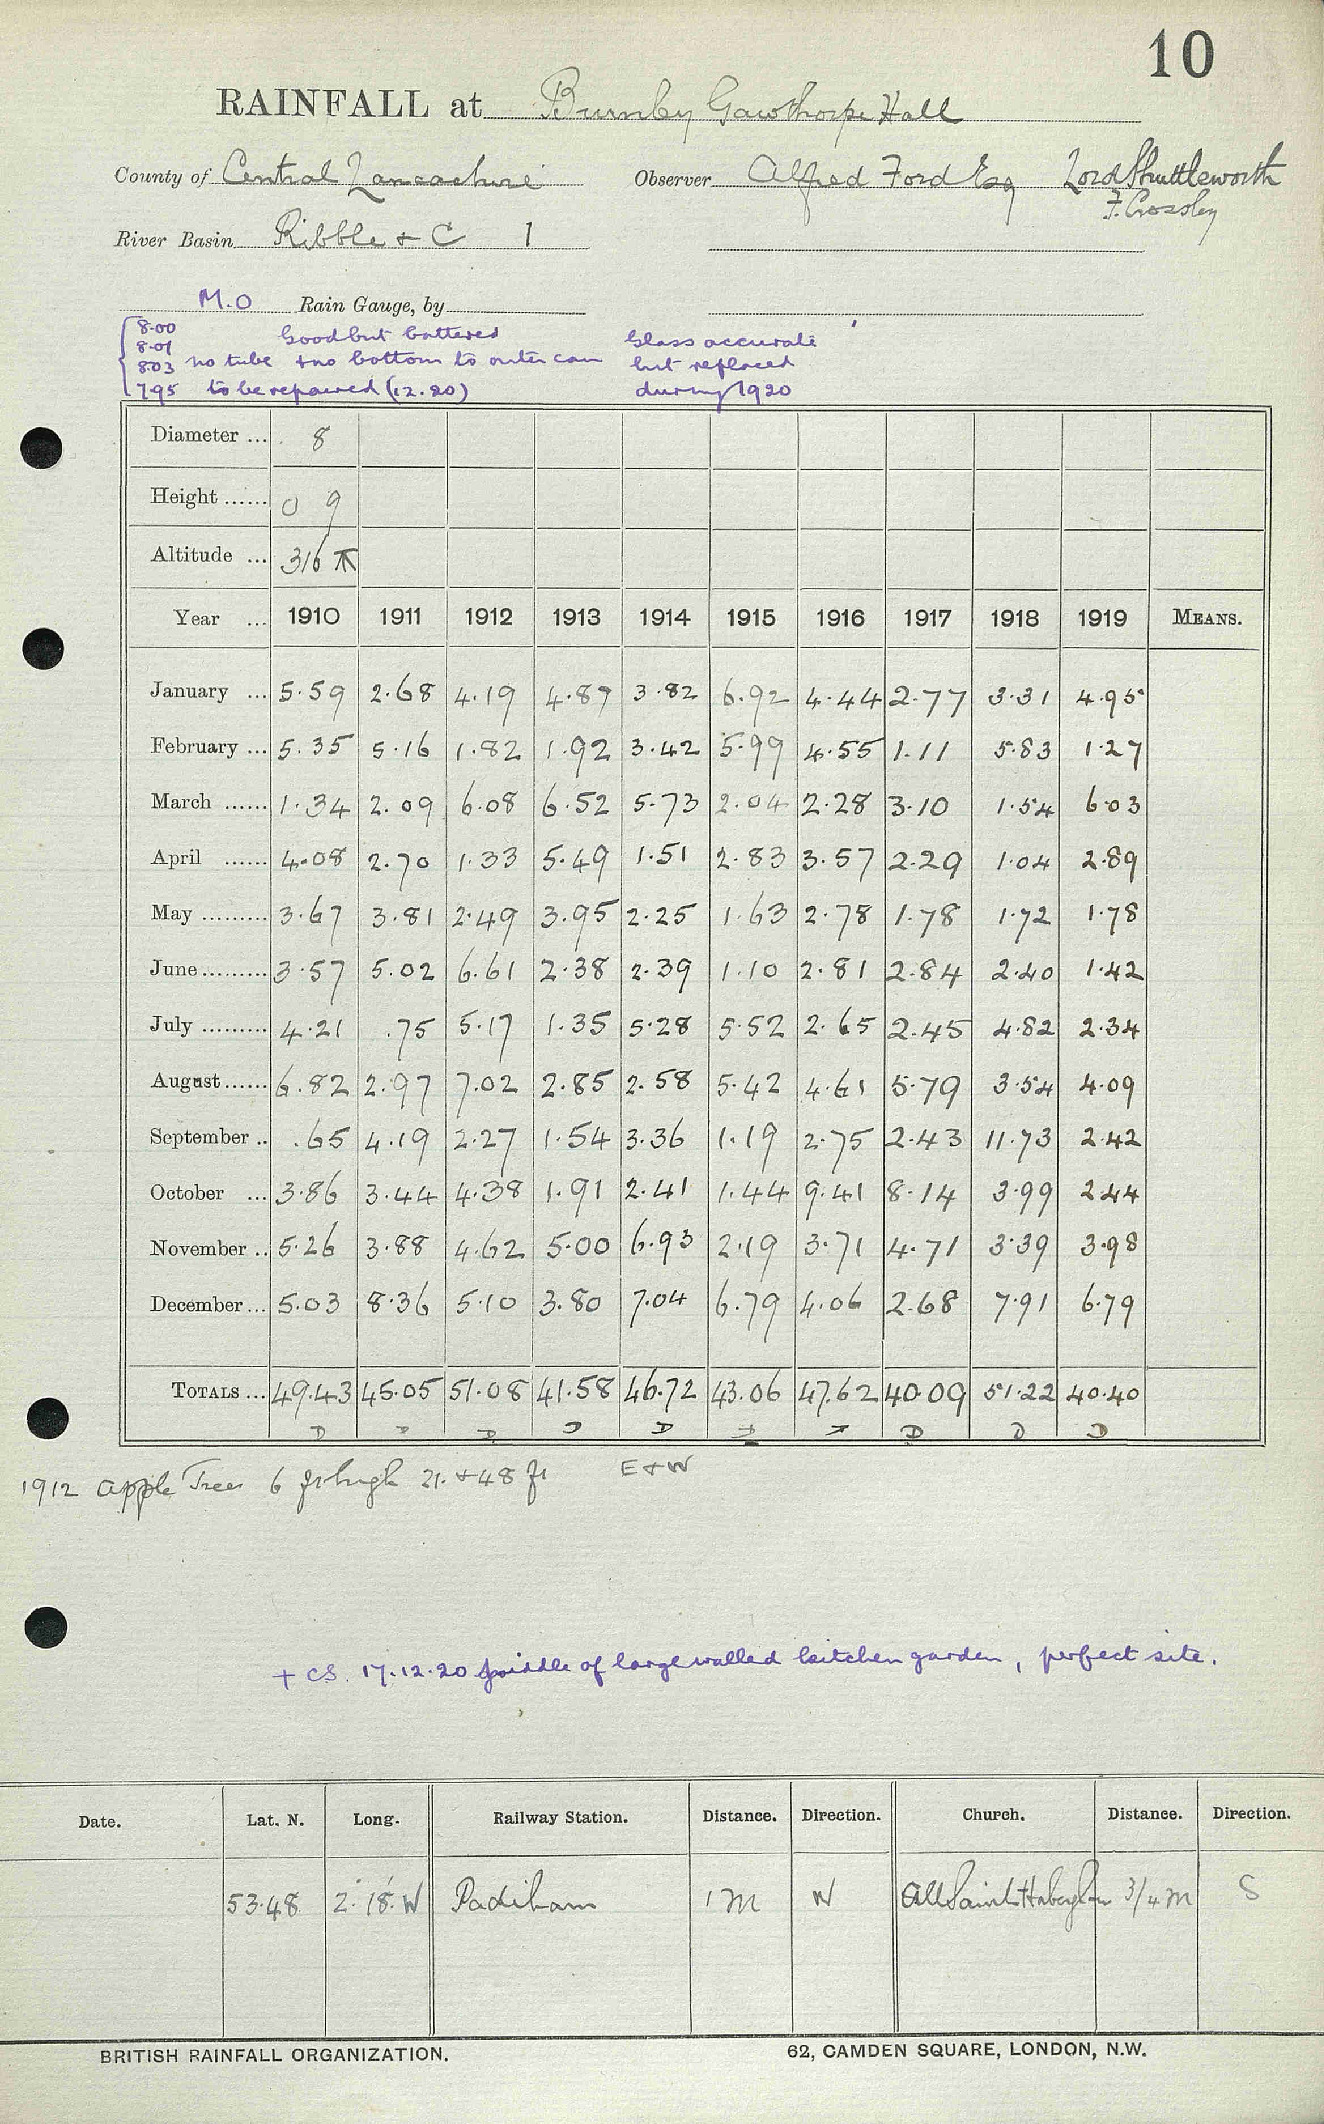 10
RAINFALL at Burnley Gawthorpe Hall
County of Central Lancashire Observer Alfred Ford Esq Lord Shuttleworth
F. Crossley
River Basin Ribble & C 1
M.O Rain Gauge, by
8.00 Good but battered Glass accurate
8.01
8.03 no tube & no bottom to outer can but replaced
7.95 to be repaired (12.20) during 1920
Diameter ... 8
Height ...... 0 9
Altitude ... 316
Year ... 1910 1911 1912 1913 1914 1915 1916 1917 1918 1919 MEANS.
January ... 5.59 2.68 4.19 4.87 3.82 6.92 4.44 2.77 3.31 4.95
February ... 5.35 5.16 1.82 1.92 3.42 5.99 4.55 1.11 5.83 1.27
March ...... 1.34 2.09 6.08 6.52 5.73 2.04 2.28 3.10 1.54 6.03
April ...... 4.08 2.70 1.33 5.49 1.51 2.83 3.57 2.29 1.04 2.89
May ......... 3.67 3.81 2.49 3.95 2.25 1.63 2.78 1.78 1.72 1.78
June ......... 3.57 5.02 6.61 2.38 2.39 1.10 2.81 2.84 2.40 1.42
July ......... 4.21 .75 5.17 1.35 5.28 5.52 2.65 2.45 4.82 2.34
August ...... 6.82 2.97 7.02 2.85 2.58 5.42 4.61 5.79 3.54 4.09
September .. .65 4.19 2.27 1.54 3.36 1.19 2.75 2.43 11.73 2.42
October ... 3.86 3.44 4.38 1.91 2.41 1.44 9.41 8.14 3.99 2.44
November .. 5.26 3.88 4.62 5.00 6.93 2.19 3.71 4.71 3.39 3.98
December ... 5.03 8.36 5.10 3.80 7.04 6.79 4.06 2.68 7.91 6.79
TOTALS ... 49.43 45.05 51.08 41.58 46.72 43.06 47.62 40.09 51.22 40.40
1912 Apple Trees 6 ft high 21 & 48 ft E & W
+ CS. 17.12.20 middle of large walled kitchen garden, perfect site.
Date. Lat. N. Long. Railway Station. Distance. Direction. Church. Distance. Direction.
53.48 2.18.W Padiham 1 m W All Saints 3/4 m S
BRITISH RAINFALL ORGANIZATION. 62, CAMDEN SQUARE, LONDON, N.W.